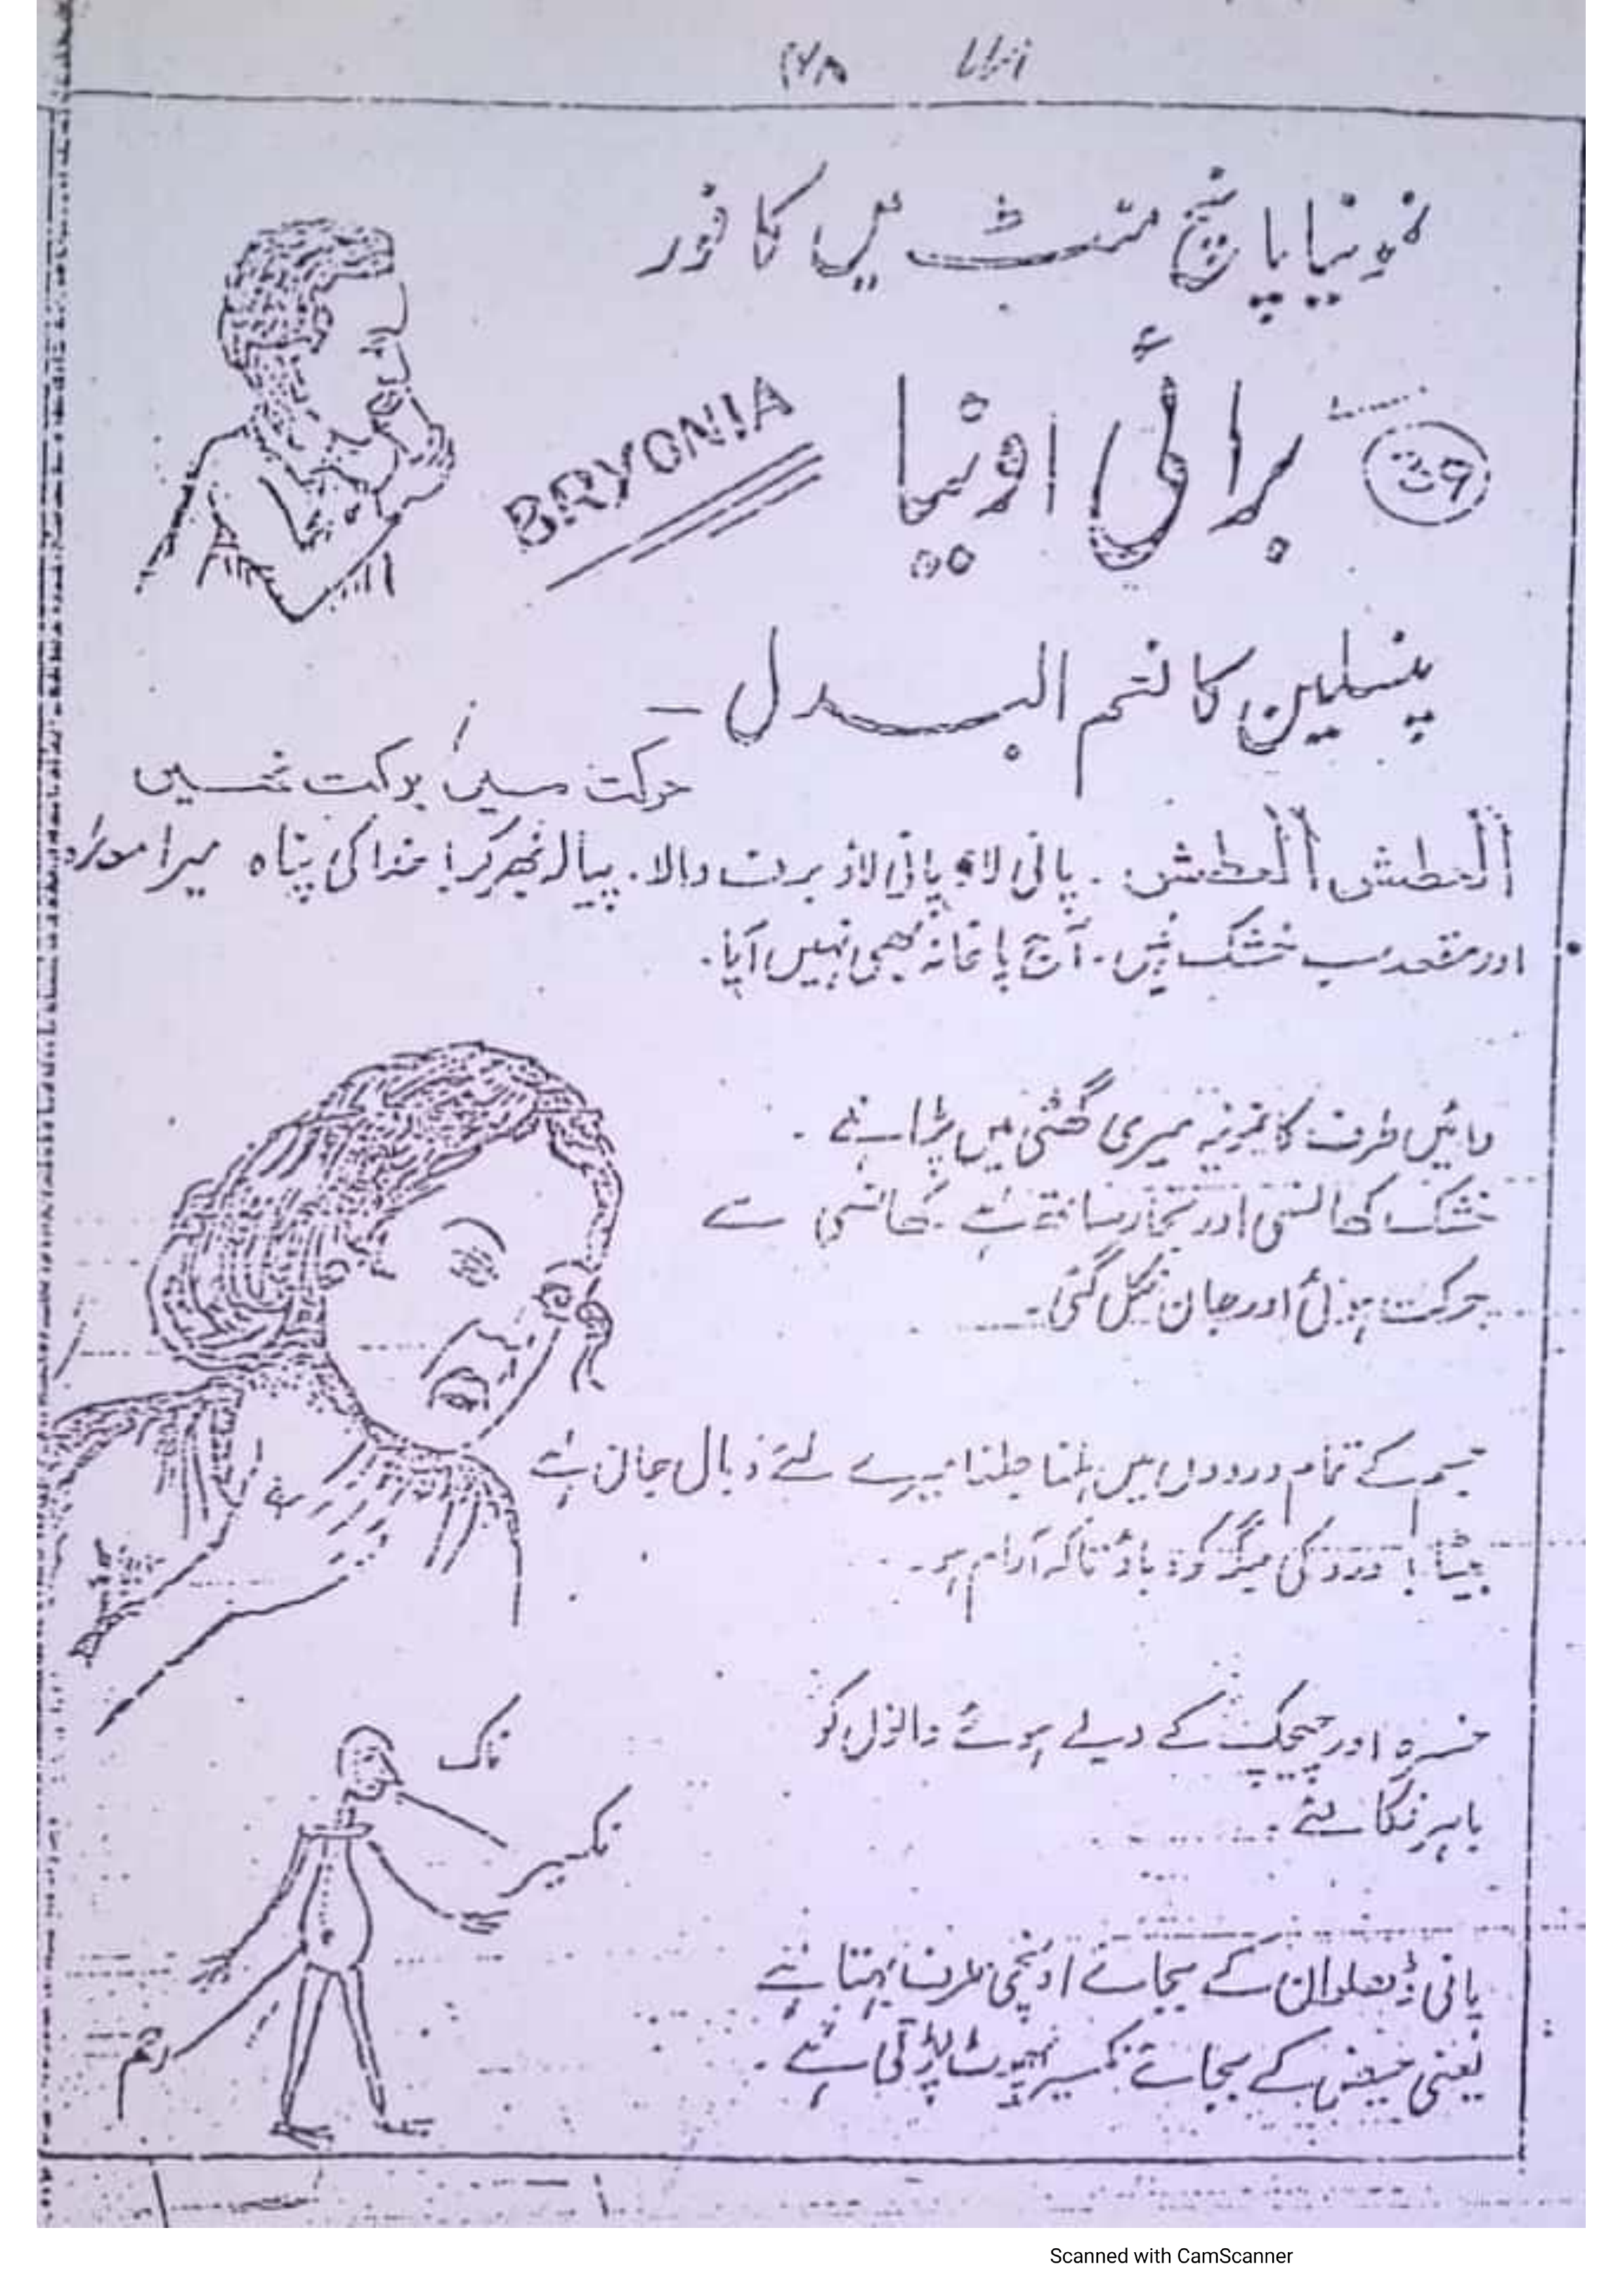 نمونیا پانچ منٹ میں کافور
برائی اونیا
BRYONIA
پنسلین کا نعم البدل -
حرکت میں برکت نہیں
اَلْعطش اَلْعطش . پانی لاؤ پانی لاؤ برف والا . پیالہ بھر کر! خدا کی پناہ میرا معدہ
اور مقعد سب خشک ہیں . آج پاخانہ بھی نہیں آیا .
دائیں طرف کا نمونیہ میری گھٹی میں پڑا ہے .
خشک کھانسی اور بخار ساتھ ہے . کھانسی سے
حرکت ہوئی اور جان نکل گئی .
جسم کے تمام دردوں میں ہلنا جلنا میرے لئے وبال جان ہے
بیٹا ! درد کی جگہ کو دباؤ تاکہ آرام ہو .
خسرہ اور چیچک کے دبے ہوئے دانوں کو
باہر نکالئے .
ناک
نکسیر
پانی ڈھلوان کے بجائے اونچی طرف بہتا ہے
رحم
یعنی حیض کے بجائے نکسیر پھوٹ پڑتی ہے .
Scanned with CamScanner